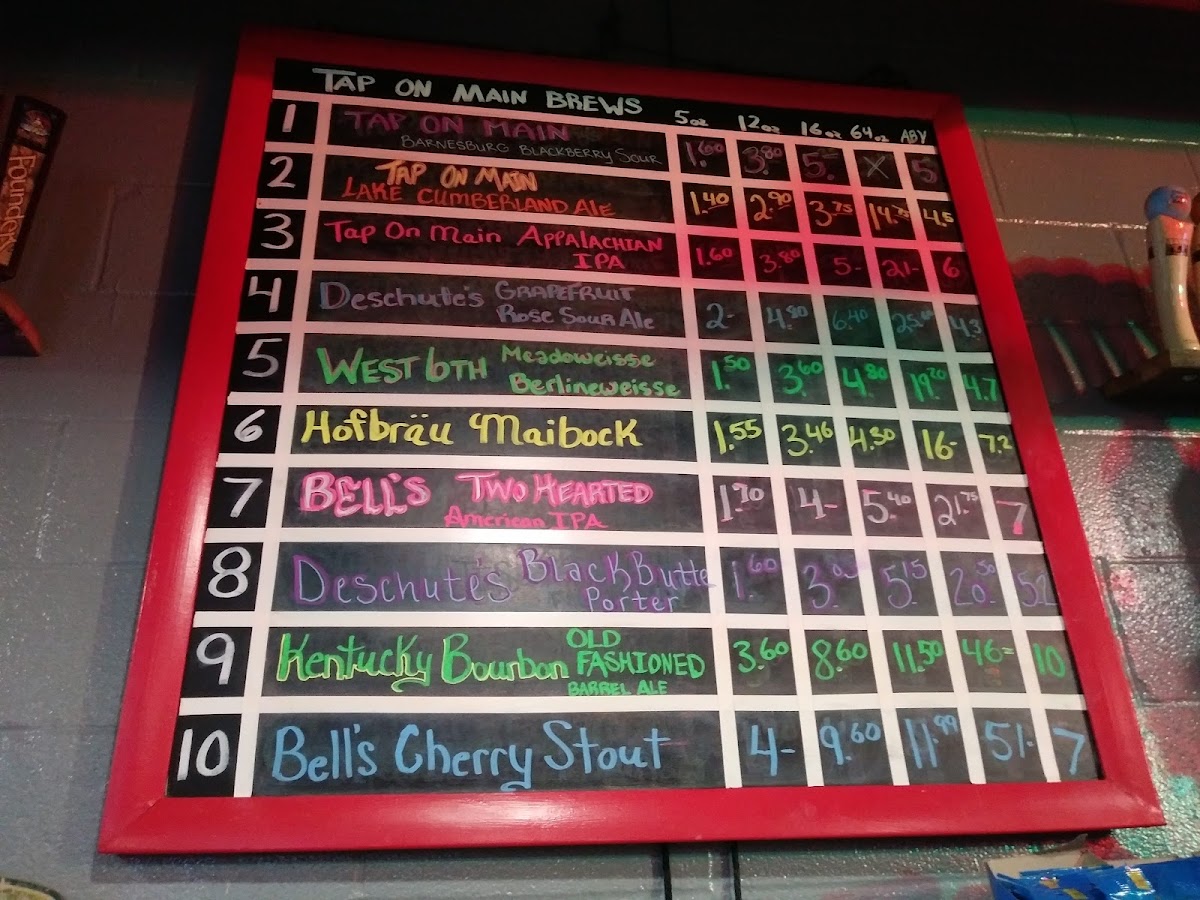 TAP ON MAIN BREWS 5oz 12oz 16oz 64oz ABV
1 TAP ON MAIN 1.60 3.80 5. X 5
BARNESBURG BLACKBERRY SOUR
2 TAP ON MAIN 1.40 2.90 3.75 14.75 4.5
LAKE CUMBERLAND ALE
3 Tap On Main APPALACHIAN 1.60 3.80 5- 21- 6
IPA
4 Deschute's GRAPEFRUIT 2- 4.80 6.40 4.3
Rose Sour Ale
5 WEST 6TH Meadoweisse 1.50 3.60 4.80 19.20 4.7
Berlineweisse
6 Hofbräu Maibock 1.55 3.46 4.50 16- 7.2
7 BELL'S TWO HEARTED 4- 5.40 21.75 7
American IPA
8 Deschute's Black Butte 1.60 5.15 20.50 5.2
Porter
9 Kentucky Bourbon OLD 3.60 8.60 11.50 46= 10
FASHIONED
BARREL ALE
10 Bell's Cherry Stout 4- 9.60 11.99 51- 7
Founders